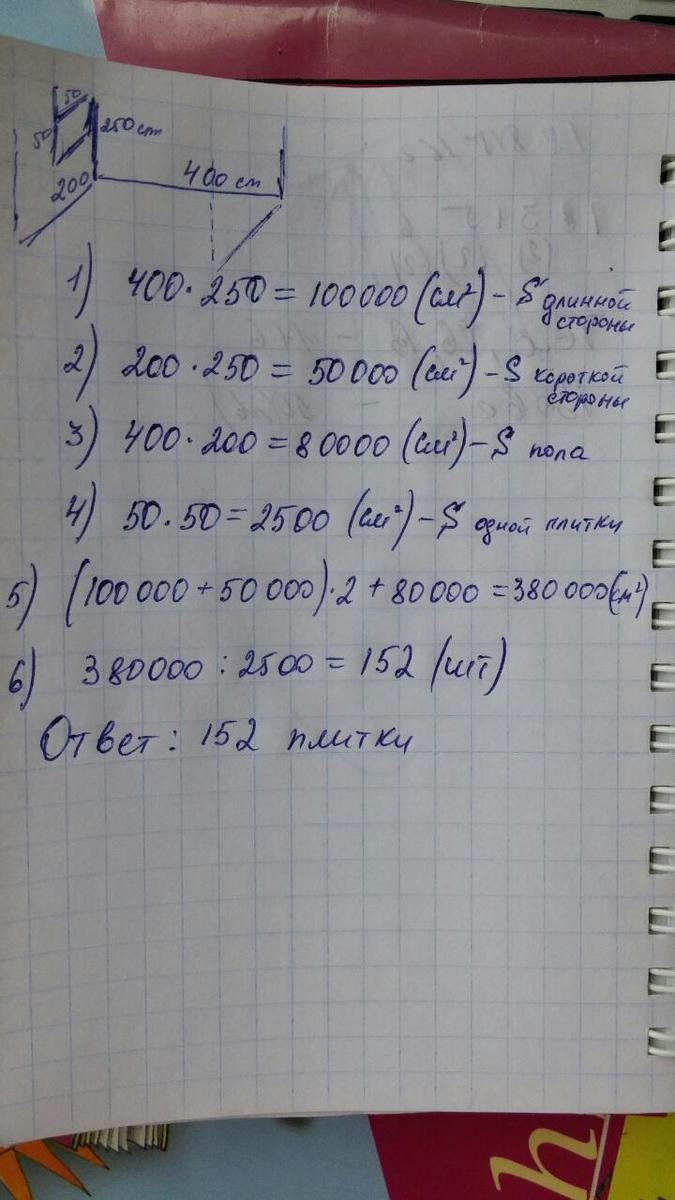 50
50
250 cm
200
400 cm
1) 400 · 250 = 100000 (см²) – S длинной
стороны
2) 200 · 250 = 50000 (см²) – S короткой
стороны
3) 400 · 200 = 80000 (см²) – S пола
4) 50 · 50 = 2500 (см²) – S одной плитки
5) (100000 + 50000) · 2 + 80000 = 380000 (см²)
6) 380000 : 2500 = 152 (шт)
Ответ: 152 плитки
h